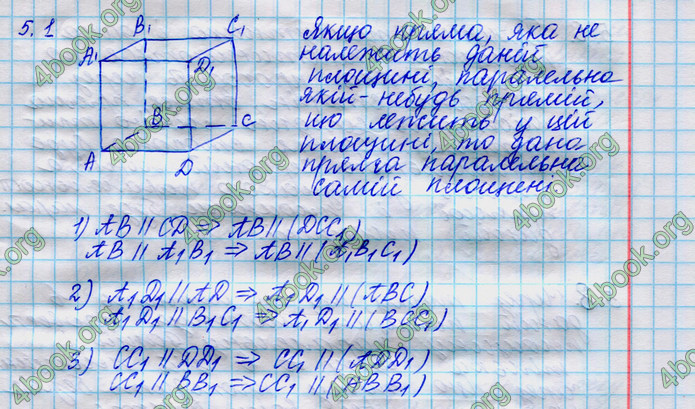 5.1
B₁ C₁
A₁ D₁
B C
A D
Якщо пряма, яка не
належить даній
площині, паралельна
якій-небудь прямій,
що лежить у цій
площині, то дана
пряма паралельна
самій площині
1) AB || CD ⇒ AB || (DCC₁)
AB || A₁B₁ ⇒ AB || (A₁B₁C₁)
2) A₁D₁ || AD ⇒ A₁D₁ || (ABC)
A₁D₁ || B₁C₁ ⇒ A₁D₁ || (BCC₁)
3) CC₁ || DD₁ ⇒ CC₁ || (ADD₁)
CC₁ || BB₁ ⇒ CC₁ || (ABB₁)
4book.org